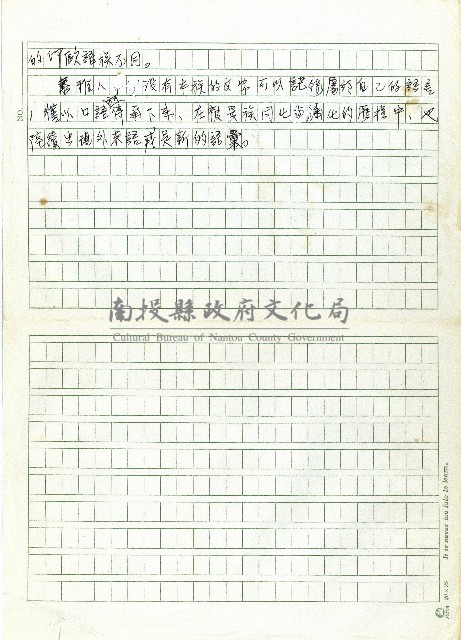 的印歐語族不同。
雅人,沒有本族的文字可以記錄屬於自己的語言
,僅以口語傳承下來,在服異族同化或漢化的歷程中,也
陸續出現外來語或是新的語彙。
NO.
南投縣政府文化局
Cultural Bureau of Nantou County Government
It is never too late to learn.
20×25